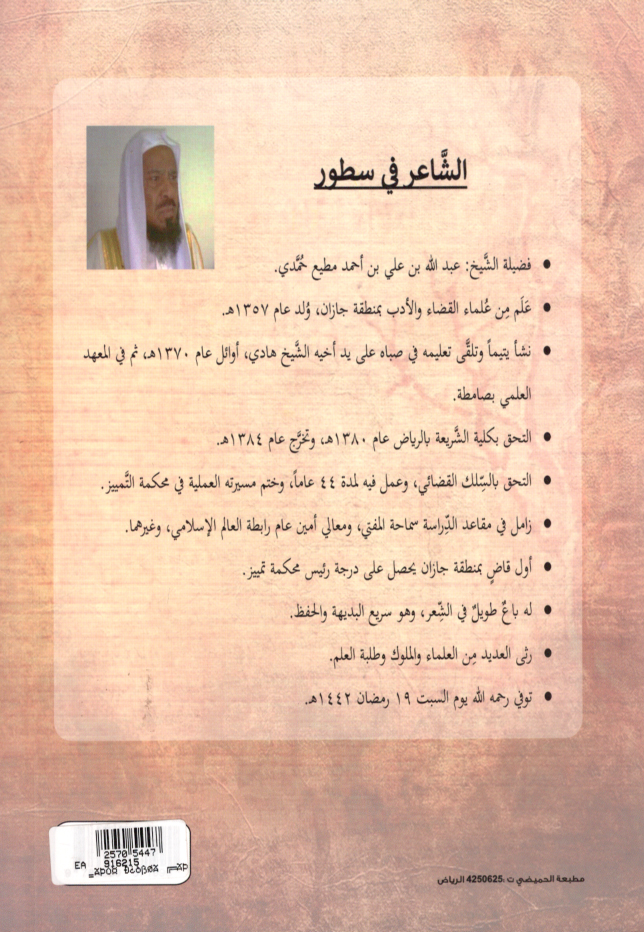 الشَّاعر في سطور
• فضيلة الشَّيخ: عبد الله بن علي بن أحمد مطيع حُمَّدي.
• عَلَم مِن عُلماء القضاء والأدب بمنطقة جازان، وُلد عام ١٣٥٧هـ.
• نشأ يتيماً وتلقَّى تعليمه في صباه على يد أخيه الشَّيخ هادي، أوائل عام ١٣٧٠هـ، ثم في المعهد
العلمي بصامطة.
• التحق بكلية الشَّريعة بالرياض عام ١٣٨٠هـ، وتخرَّج عام ١٣٨٤هـ.
• التحق بالسِّلك القضائي، وعمل فيه لمدة ٤٤ عاماً، وختم مسيرته العملية في محكمة التَّمييز.
• زامل في مقاعد الدِّراسة سماحة المفتي، ومعالي أمين عام رابطة العالم الإسلامي، وغيرهما.
• أول قاضٍ بمنطقة جازان يحصل على درجة رئيس محكمة تمييز.
• له باعٌ طويلٌ في الشِّعر، وهو سريع البديهة والحفظ.
• رثى العديد مِن العلماء والملوك وطلبة العلم.
• توفي رحمه الله يوم السبت ١٩ رمضان ١٤٤٢هـ.
2570 5447
EA 916215
مطبعة الحميضي ت :4250625 الرياض